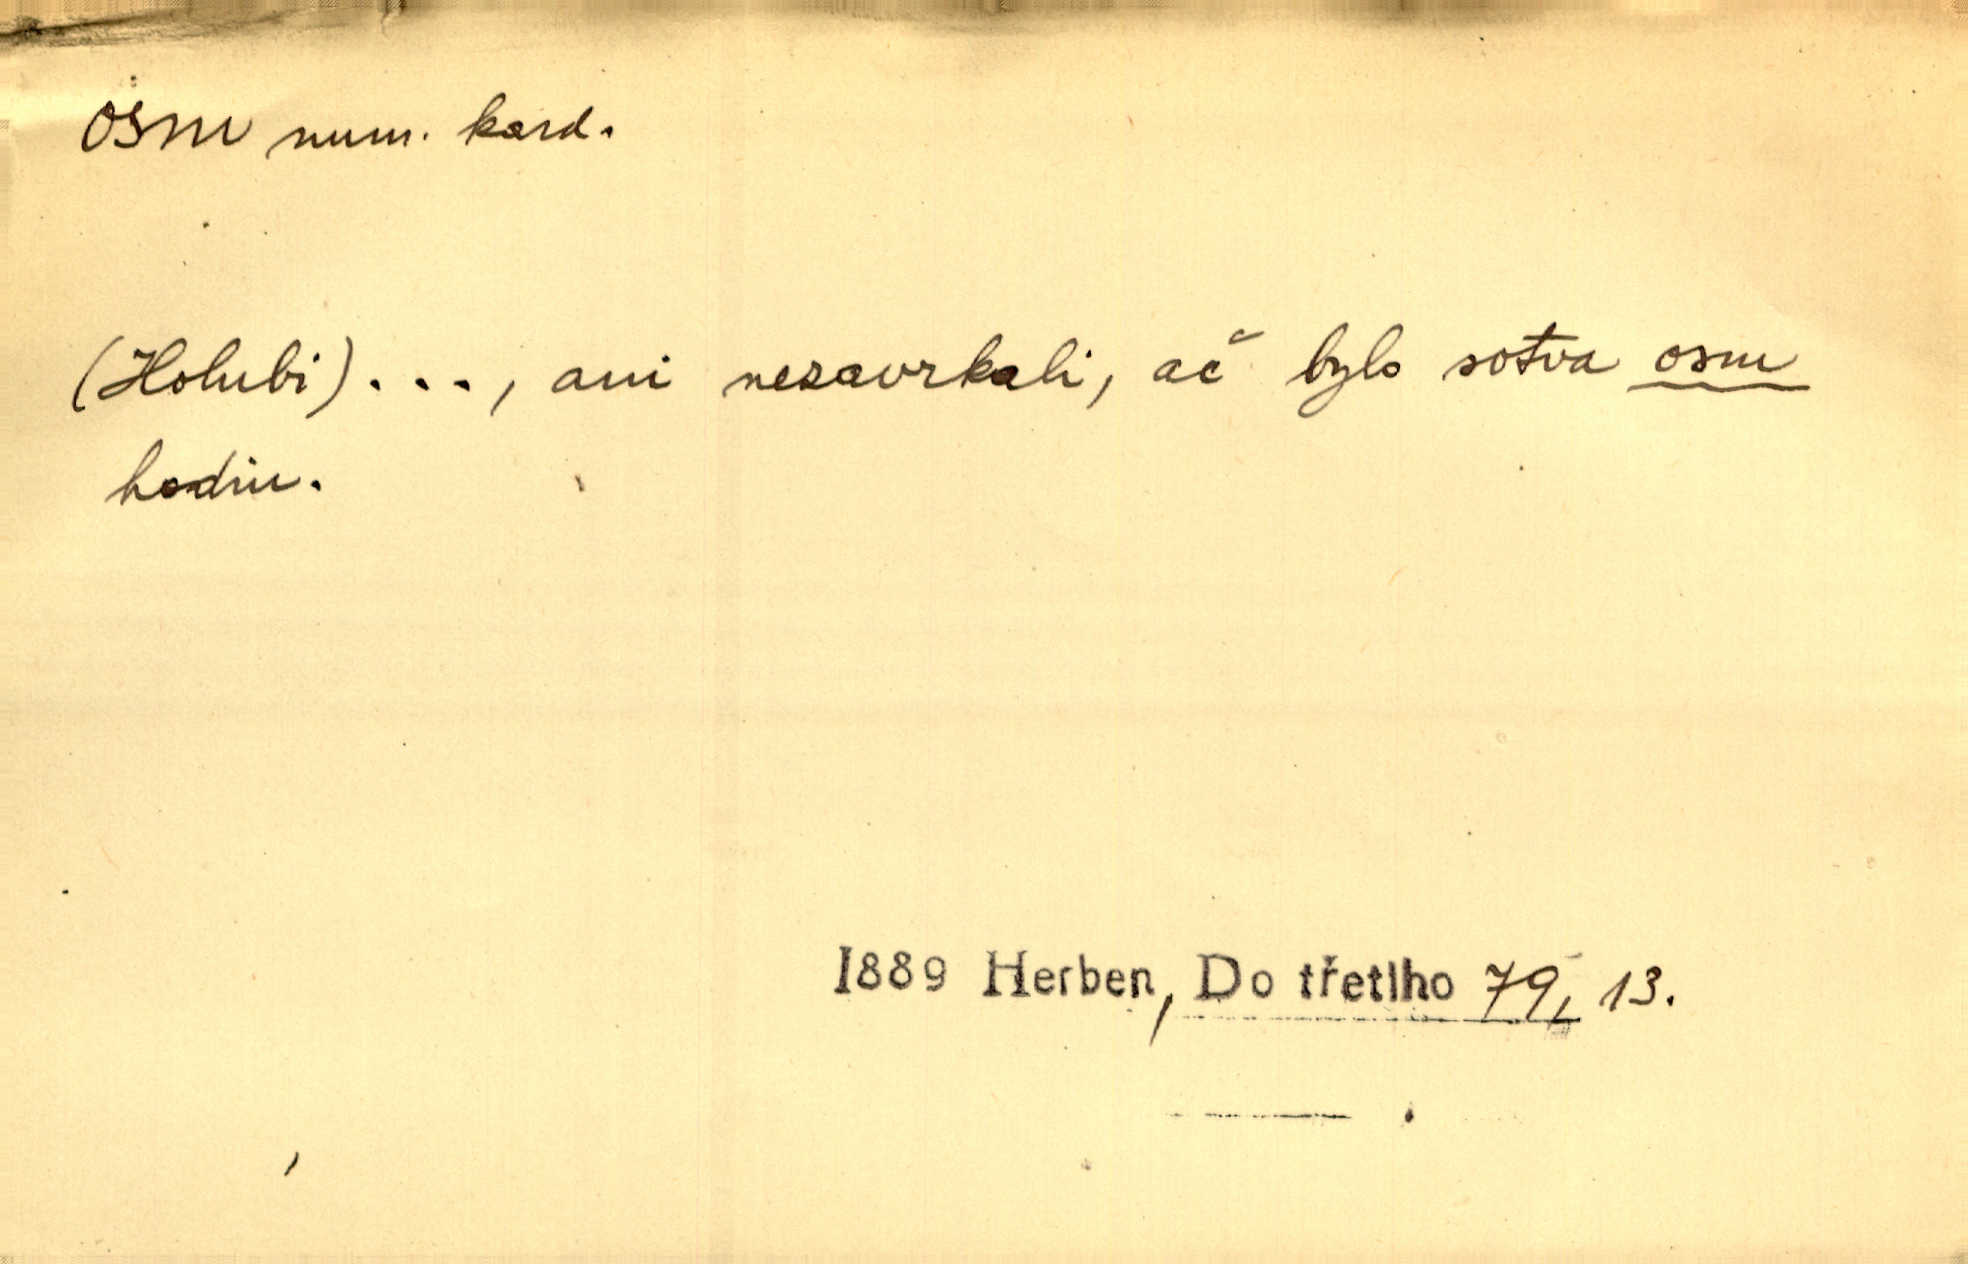 osm num. kard.
(Holubi)..., ani nezavrkali, ač bylo sotva osm
hodin.
1889 Herben, Do třetího 79, 13.